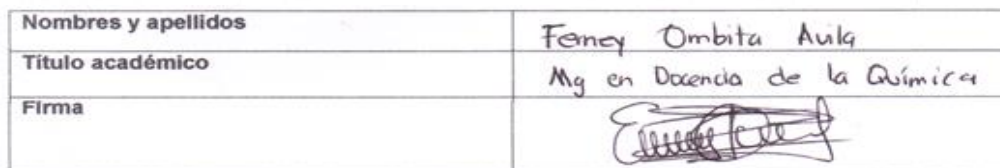 Nombres y apellidos Ferney Ombita Avila
Título académico Mg en Docencia de la Química
Firma